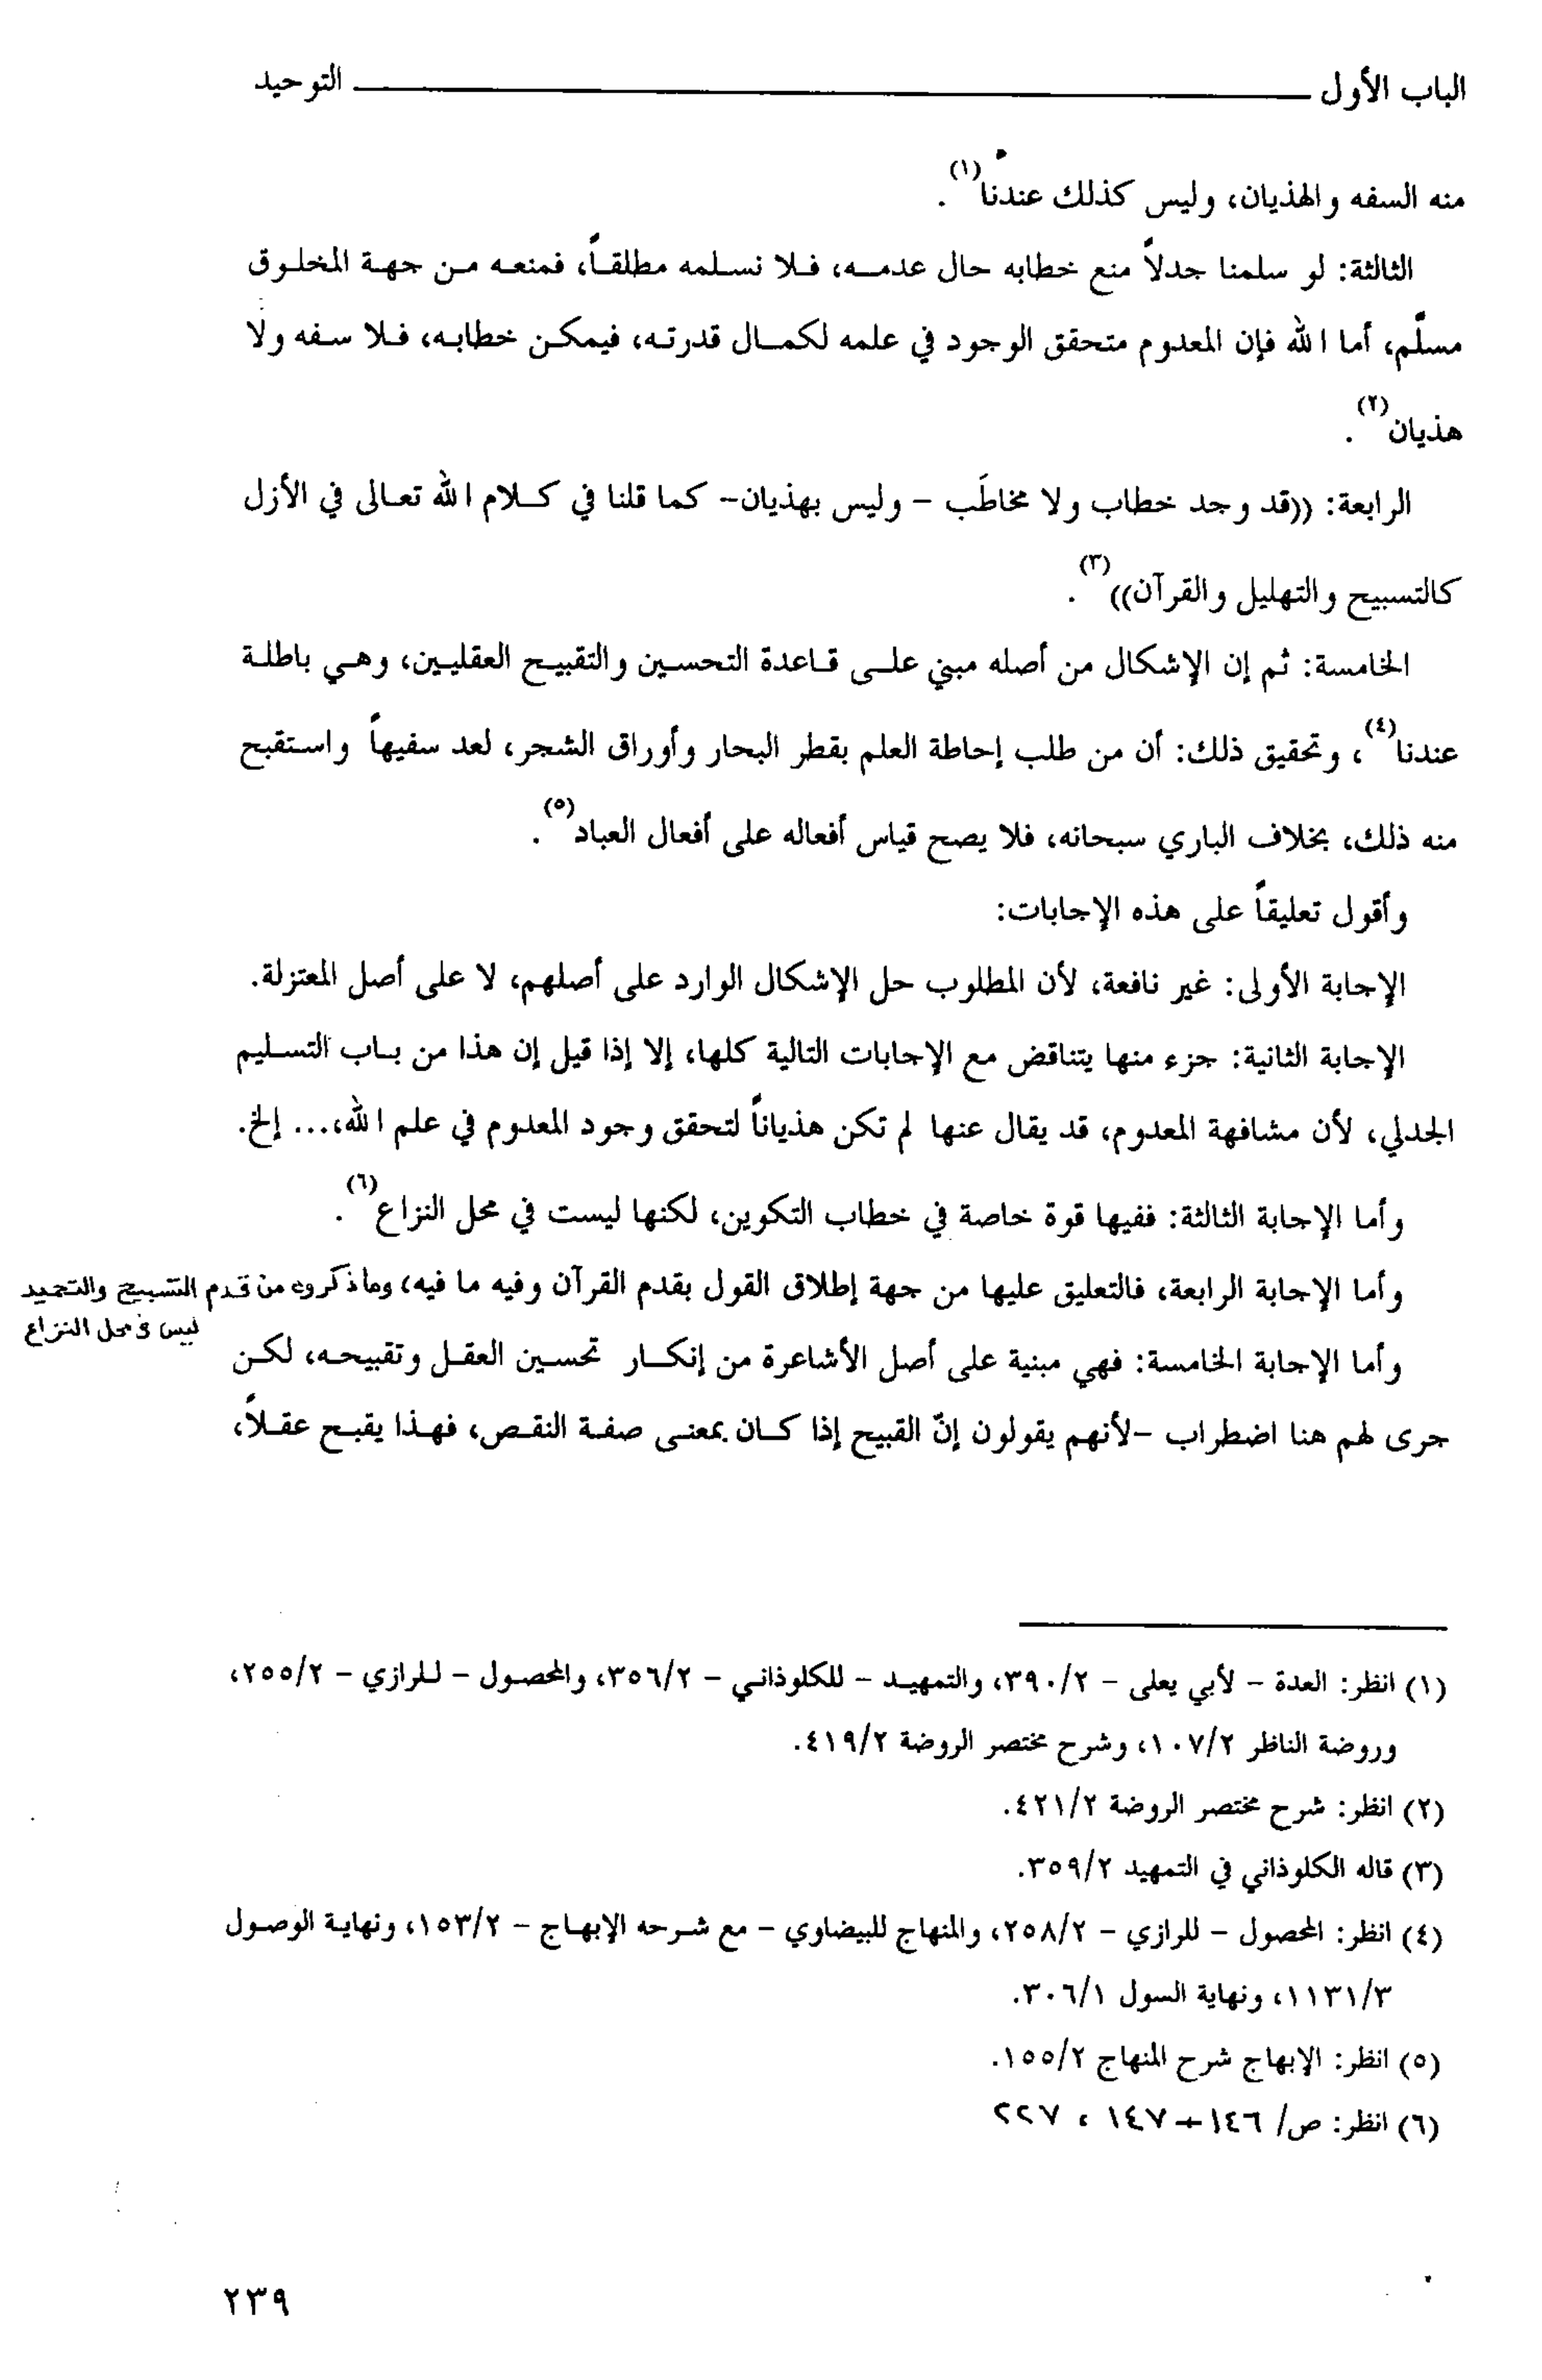 الباب الأول ـــــــ التوحيد
منه السفه والهذيان، وليس كذلك عندنا(١).
الثالثة: لو سلمنا جدلاً منع خطابه حال عدمه، فلا نسلمه مطلقاً، فمنعه من جهة المخلوق
مسلّم، أما الله فإن المعدوم متحقق الوجود في علمه لكمال قدرته، فيمكن خطابه، فلا سفه ولا
هذيان(٢).
الرابعة: ((قد وجد خطاب ولا مخاطَب - وليس بهذيان- كما قلنا في كلام الله تعالى في الأزل
كالتسبيح والتهليل والقرآن))(٣).
الخامسة: ثم إن الإشكال من أصله مبني على قاعدة التحسين والتقبيح العقليين، وهي باطلة
عندنا(٤)، وتحقيق ذلك: أن من طلب إحاطة العلم بقطر البحار وأوراق الشجر، لعد سفيهاً واستقبح
منه ذلك، بخلاف الباري سبحانه، فلا يصح قياس أفعاله على أفعال العباد(٥).
وأقول تعليقاً على هذه الإجابات:
الإجابة الأولى: غير نافعة، لأن المطلوب حل الإشكال الوارد على أصلهم، لا على أصل المعتزلة.
الإجابة الثانية: جزء منها يتناقض مع الإجابات التالية كلها، إلا إذا قيل إن هذا من باب التسليم
الجدلي، لأن مشافهة المعدوم، قد يقال عنها لم تكن هذياناً لتحقق وجود المعدوم في علم الله،... إلخ.
وأما الإجابة الثالثة: ففيها قوة خاصة في خطاب التكوين، لكنها ليست في محل النزاع(٦).
وأما الإجابة الرابعة، فالتعليق عليها من جهة إطلاق القول بقدم القرآن وفيه ما فيه، وما ذكروه من قدم التسبيح والتحميد
ليس في محل النزاع
وأما الإجابة الخامسة: فهي مبنية على أصل الأشاعرة من إنكار تحسين العقل وتقبيحه، لكن
جرى لهم هنا اضطراب -لأنهم يقولون إنّ القبيح إذا كان بمعنى صفة النقص، فهذا يقبح عقلاً،
(١) انظر: العدة - لأبي يعلى - ٣٩٠/٢، والتمهيد - للكلوذاني - ٣٥٦/٢، والمحصول - للرازي - ٢٥٥/٢،
وروضة الناظر ١٠٧/٢، وشرح مختصر الروضة ٤١٩/٢.
(٢) انظر: شرح مختصر الروضة ٤٢١/٢.
(٣) قاله الكلوذاني في التمهيد ٣٥٩/٢.
(٤) انظر: المحصول - للرازي - ٢٥٨/٢، والمنهاج للبيضاوي - مع شرحه الإبهاج - ١٥٣/٢، ونهاية الوصول
١١٣١/٣، ونهاية السول ٣٠٦/١.
(٥) انظر: الإبهاج شرح المنهاج ١٥٥/٢.
(٦) انظر: ص/ ١٤٦-١٤٧ ، ٢٢٧
٢٣٩